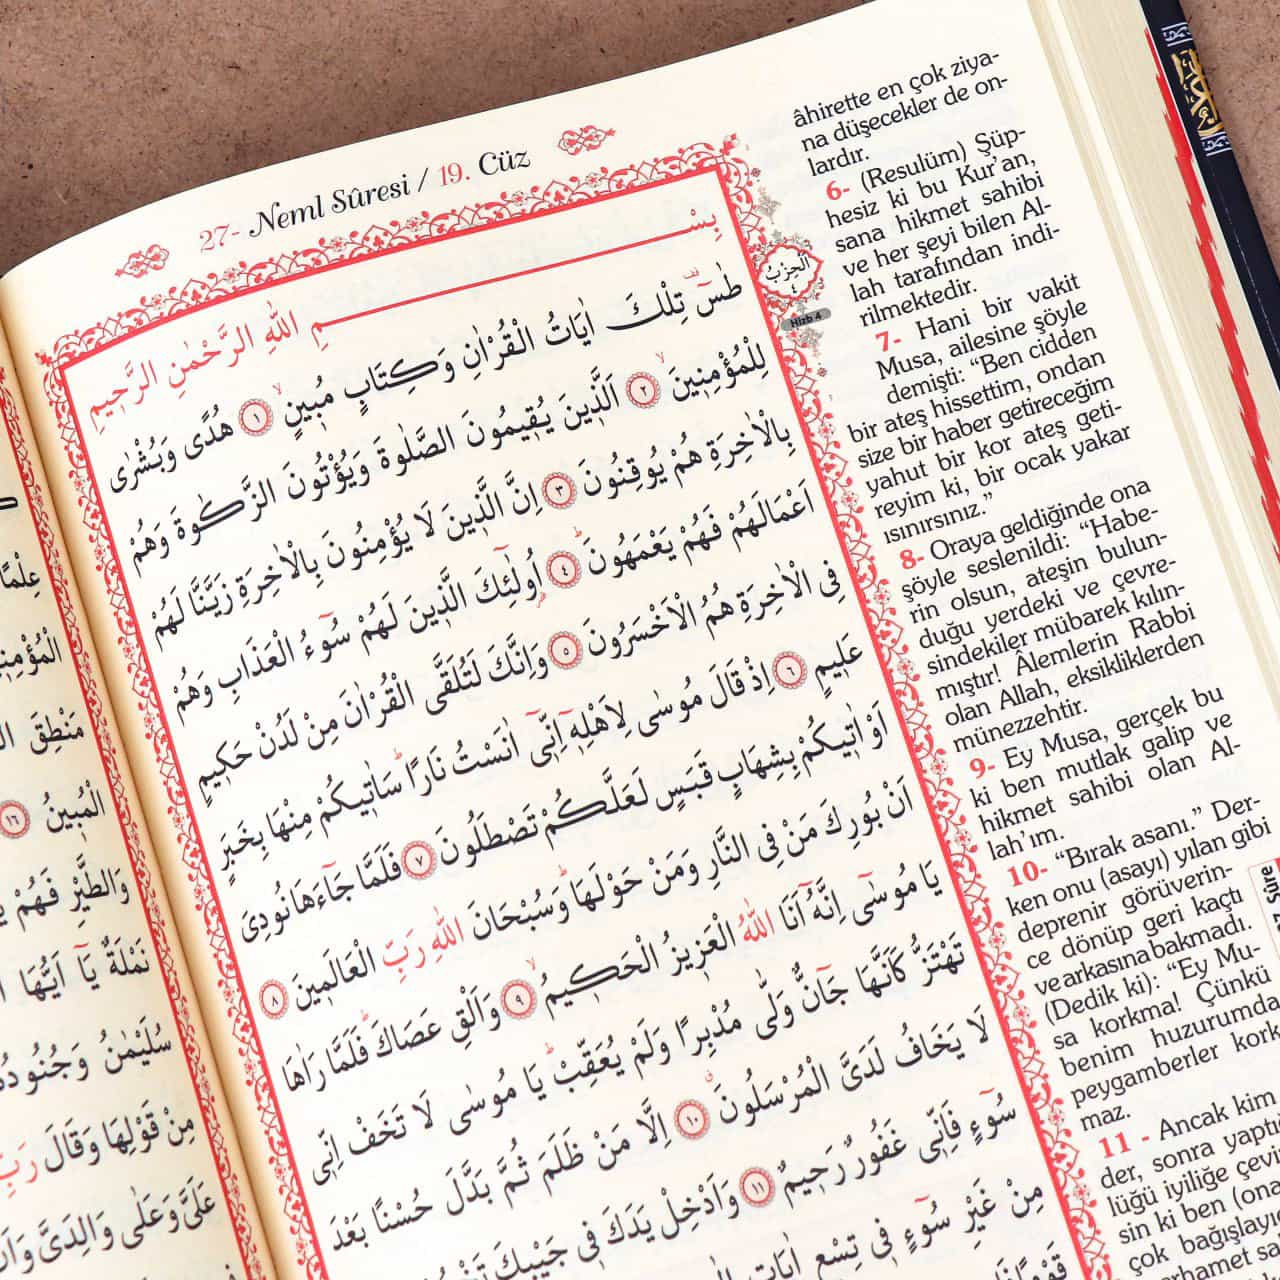 27- Neml Sûresi / 19. Cüz
بِسْمِ اللّٰهِ الرَّحْمٰنِ الرَّح۪يمِ
طٰسٓ۠ تِلْكَ اٰيَاتُ الْقُرْاٰنِ وَكِتَابٍ مُب۪ينٍۙ ﴿١﴾ هُدًى وَبُشْرٰى
لِلْمُؤْمِن۪ينَۙ ﴿٢﴾ اَلَّذ۪ينَ يُق۪يمُونَ الصَّلٰوةَ وَيُؤْتُونَ الزَّكٰوةَ وَهُمْ
بِالْاٰخِرَةِ هُمْ يُوقِنُونَ ﴿٣﴾ اِنَّ الَّذ۪ينَ لَا يُؤْمِنُونَ بِالْاٰخِرَةِ زَيَّنَّا لَهُمْ
اَعْمَالَهُمْ فَهُمْ يَعْمَهُونَۜ ﴿٤﴾ اُو۬لٰٓئِكَ الَّذ۪ينَ لَهُمْ سُٓوءُ الْعَذَابِ وَهُمْ
فِي الْاٰخِرَةِ هُمُ الْاَخْسَرُونَ ﴿٥﴾ وَاِنَّكَ لَتُلَقَّى الْقُرْاٰنَ مِنْ لَدُنْ حَك۪يمٍ
عَل۪يمٍ ﴿٦﴾ اِذْ قَالَ مُوسٰى لِاَهْلِه۪ٓ اِنّ۪ٓي اٰنَسْتُ نَارًاۜ سَاٰت۪يكُمْ مِنْهَا بِخَبَرٍ
اَوْ اٰت۪يكُمْ بِشِهَابٍ قَبَسٍ لَعَلَّكُمْ تَصْطَلُونَ ﴿٧﴾ فَلَمَّا جَٓاءَهَا نُودِيَ
اَنْ بُورِكَ مَنْ فِي النَّارِ وَمَنْ حَوْلَهَاۜ وَسُبْحَانَ اللّٰهِ رَبِّ الْعَالَم۪ينَ ﴿٨﴾
يَا مُوسٰٓى اِنَّهُٓ اَنَا اللّٰهُ الْعَز۪يزُ الْحَك۪يمُۙ ﴿٩﴾ وَاَلْقِ عَصَاكَۜ فَلَمَّا رَاٰهَا
تَهْتَزُّ كَاَنَّهَا جَٓانٌّ وَلّٰى مُدْبِرًا وَلَمْ يُعَقِّبْۜ يَا مُوسٰى لَا تَخَفْ اِنّ۪ي
لَا يَخَافُ لَدَيَّ الْمُرْسَلُونَۗ ﴿١٠﴾ اِلَّا مَنْ ظَلَمَ ثُمَّ بَدَّلَ حُسْنًا بَعْدَ
سُٓوءٍ فَاِنّ۪ي غَفُورٌ رَح۪يمٌ ﴿١١﴾ وَاَدْخِلْ يَدَكَ ف۪ي جَيْبِكَ
مِنْ غَيْرِ سُٓوءٍ ف۪ي تِسْعِ اٰيَاتٍ
اَلْحِزْبُ
٤
Hizb 4
âhirette en çok ziya-
na düşecekler de on-
lardır.
6- (Resulüm) Şüp-
hesiz ki bu Kur'an,
sana hikmet sahibi
ve her şeyi bilen Al-
lah tarafından indi-
rilmektedir.
7- Hani bir vakit
Musa, ailesine şöyle
demişti: "Ben cidden
bir ateş hissettim, ondan
size bir haber getireceğim
yahut bir kor ateş geti-
reyim ki, bir ocak yakar
ısınırsınız."
8- Oraya geldiğinde ona
şöyle seslenildi: "Habe-
rin olsun, ateşin bulun-
duğu yerdeki ve çevre-
sindekiler mübarek kılın-
mıştır! Âlemlerin Rabbi
olan Allah, eksikliklerden
münezzehtir.
9- Ey Musa, gerçek bu
ki ben mutlak galip ve
hikmet sahibi olan Al-
lah'ım.
10- "Bırak asanı." Der-
ken onu (asayı) yılan gibi
deprenir görüverin-
ce dönüp geri kaçtı
ve arkasına bakmadı.
(Dedik ki): "Ey Mu-
sa korkma! Çünkü
benim huzurumda
peygamberler kork-
maz.
11 - Ancak kim
der, sonra yaptı
lüğü iyiliğe çevi
sin ki ben (ona
çok bağışlayıc
Sûre
عِلْمًا
الْمُؤْمِن
مَنْطِقَ
الْمُب۪ينُ ﴿١٦﴾
وَالطَّيْرِ فَهُمْ
نَمْلَةٌ يَٓا اَيُّهَا
سُلَيْمٰنُ وَجُنُودُهُ
مِنْ قَوْلِهَا وَقَالَ رَبِّ
عَلَيَّ وَعَلٰى وَالِدَيَّ وَاَنْ